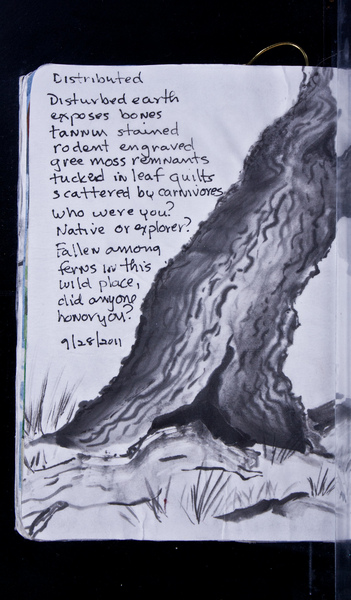 Distributed
Disturbed earth
exposes bones
tannin stained
rodent engraved
gree moss remnants
tucked in leaf quilts
scattered by carnivores
Who were you?
Native or explorer?
Fallen among
ferns in this
wild place,
did anyone
honor you?
9/28/2011